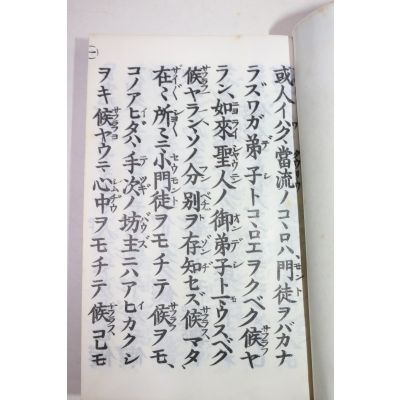 或人イハク當流ノコヽロハ、門徒ヲバカナ
ラズワガ弟子トコヽロエヲクベク候ヤ
ラン、如來聖人ノ御弟子トマウスベク
候ヤランソノ分別ヲ存知セズ候マタ、
在々所々ニ小門徒ヲモチテ候ヲモ、
コノアヒダハ手次ノ坊主ニハアヒカクシ
ヲキ候ヤウニ心中ヲモチテ候コレモ